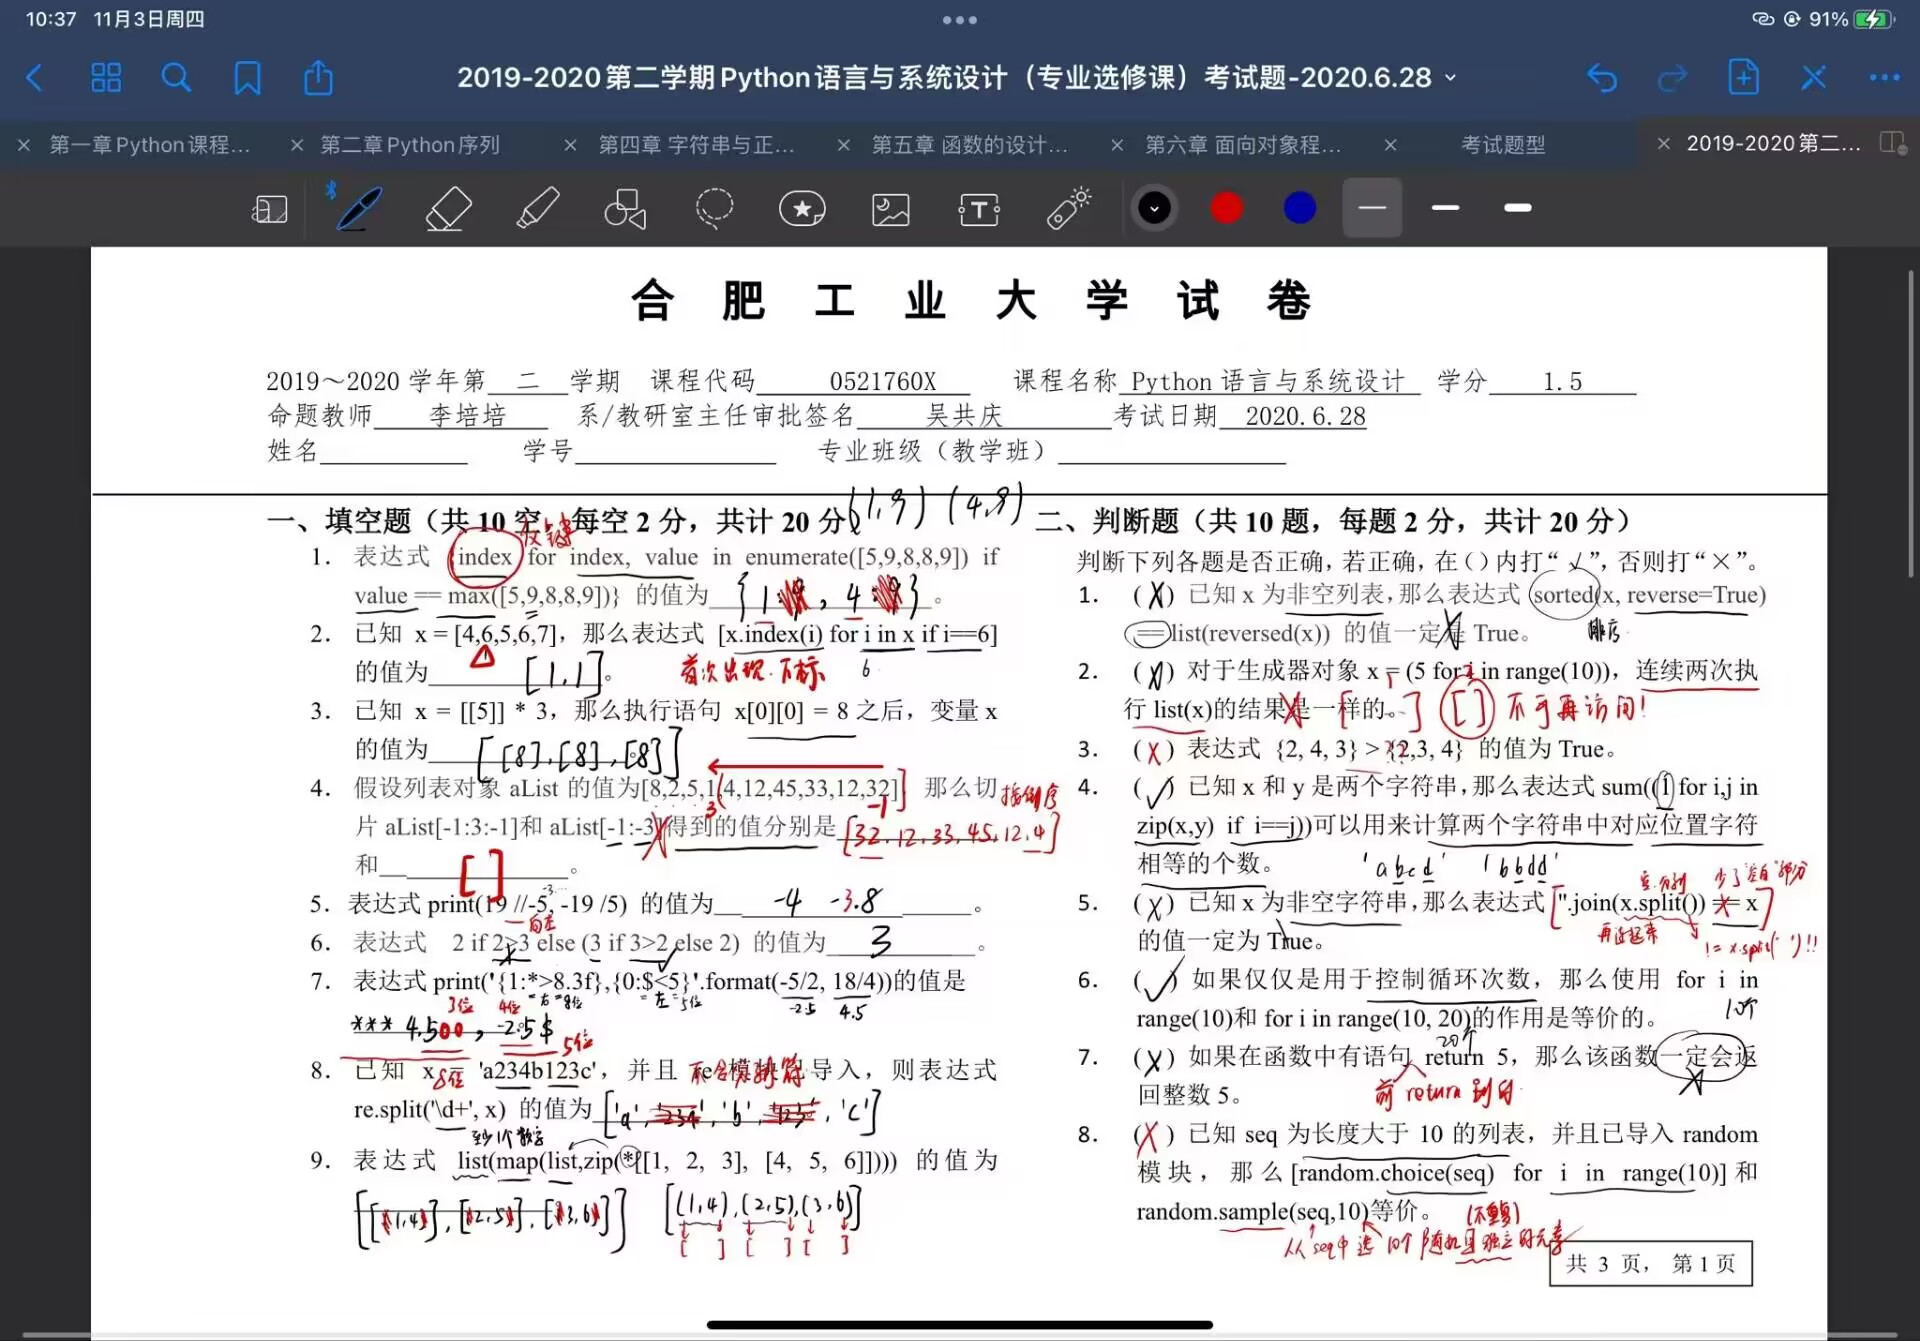 10:37 11月3日周四
91%
2019-2020第二学期Python语言与系统设计（专业选修课）考试题-2020.6.28
第一章Python课程...
第二章Python序列
第四章 字符串与正...
第五章 函数的设计...
第六章 面向对象程...
考试题型
2019-2020第二...
合 肥 工 业 大 学 试 卷
2019～2020 学年第 二 学期 课程代码 0521760X 课程名称 Python 语言与系统设计 学分 1.5
命题教师 李培培 系/教研室主任审批签名 吴共庆 考试日期 2020.6.28
姓名 学号 专业班级（教学班）
(1,9) (4,9)
一、填空题（共 10 空，每空 2 分，共计 20 分）
1. 表达式 {index for index, value in enumerate([5,9,8,8,9]) if
value == max([5,9,8,8,9])} 的值为 {1, 4}。
2. 已知 x = [4,6,5,6,7]，那么表达式 [x.index(i) for i in x if i==6]
的值为 [1,1]。 首次出现下标 6
3. 已知 x = [[5]] * 3，那么执行语句 x[0][0] = 8 之后，变量 x
的值为 [[8],[8],[8]]
4. 假设列表对象 aList 的值为[8,2,5,1,4,12,45,33,12,32] 那么切
3 -1
片 aList[-1:3:-1]和 aList[-1:-3]得到的值分别是 [32,12,33,45,12,4]
和 [ ] 。
5. 表达式 print(19 //-5, -19 /5) 的值为 -4 -3.8 。
6. 表达式 2 if 2>3 else (3 if 3>2 else 2) 的值为 3 。
7. 表达式 print('{1:*>8.3f},{0:$<5}'.format(-5/2, 18/4))的值是
3位 4位 右 8位 左 5位 -2.5 4.5
*** 4.500, -2.5$ 5位
8位
8. 已知 x = 'a234b123c'，并且 re 模块已导入，则表达式
re.split('\d+', x) 的值为 ['a', 'b', 'c']
至少1个数字
9. 表达式 list(map(list,zip(*[[1, 2, 3], [4, 5, 6]]))) 的值为
[[1,4],[2,5],[3,6]] [(1,4),(2,5),(3,6)]
[ ] [ ] [ ]
二、判断题（共 10 题，每题 2 分，共计 20 分）
判断下列各题是否正确，若正确，在（）内打“√”，否则打“×”。
1. (X) 已知 x 为非空列表，那么表达式 sorted(x, reverse=True)
==list(reversed(x)) 的值一定是 True。 排序
2. (X) 对于生成器对象 x = (5 for i in range(10))，连续两次执
行 list(x)的结果是一样的。 [ ] [ ] 不可再访问!
3. (X) 表达式 {2, 4, 3} > {2,3, 4} 的值为 True。
4. (√) 已知 x 和 y 是两个字符串，那么表达式 sum((1 for i,j in
zip(x,y) if i==j))可以用来计算两个字符串中对应位置字符
相等的个数。 'abcd' 'bbdd'
5. (X) 已知 x 为非空字符串，那么表达式 ''.join(x.split()) == x
的值一定为 True。
6. (√) 如果仅仅是用于控制循环次数，那么使用 for i in
10个
range(10)和 for i in range(10, 20)的作用是等价的。
20个
7. (X) 如果在函数中有语句 return 5，那么该函数一定会返
回整数 5。 前 return 别的
8. (X) 已知 seq 为长度大于 10 的列表，并且已导入 random
模块，那么[random.choice(seq) for i in range(10)]和
random.sample(seq,10)等价。 (不重复)
从seq中选10个随机且独立的元素
共 3 页， 第 1 页